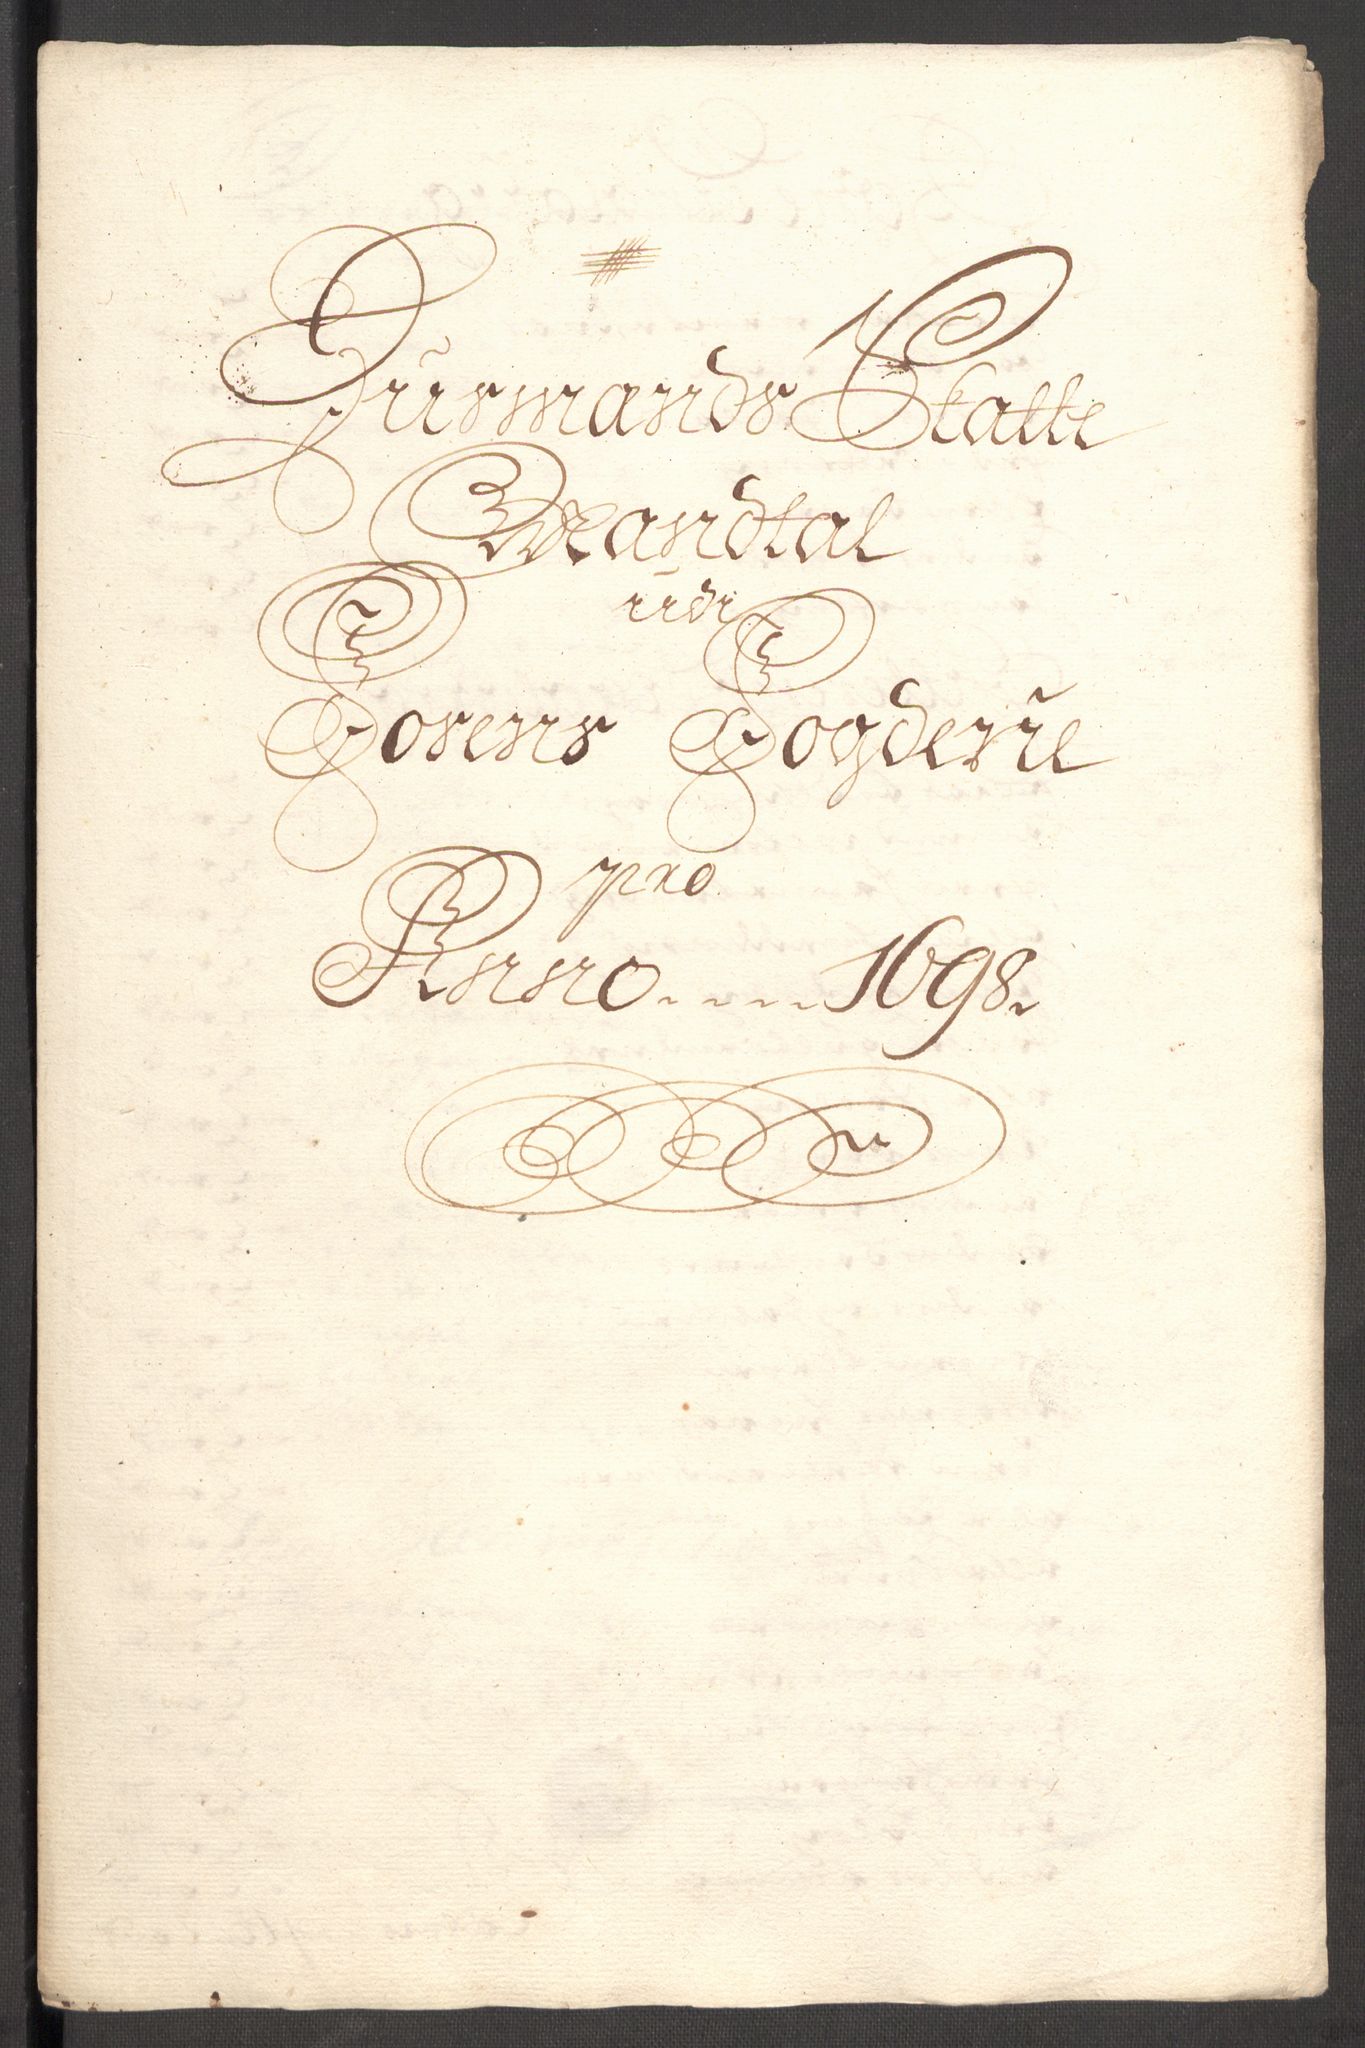 Huusmands Skatte
Mandtal
udi
Fosens Fogderie
pro
Anno . . . . 1698.